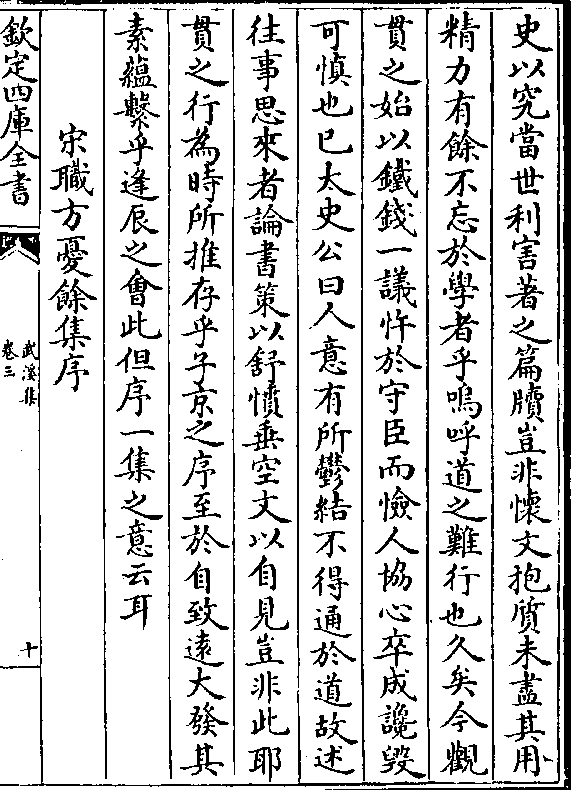 史以究當世利害著之篇牘豈非懷文抱質未盡其用
精力有餘不忘於學者乎嗚呼道之難行也久矣今觀
貫之始以鐵錢一議忤於守臣而憸人協心卒成讒毀
可慎也已太史公曰人意有所鬱結不得通於道故述
往事思來者論書策以舒憤垂空文以自見豈非此耶
貫之行為時所推存乎子京之序至於自致遠大發其
素蘊繫乎逢辰之會此但序一集之意云耳
宋職方憂餘集序
欽定四庫全書
武溪集
卷三
十